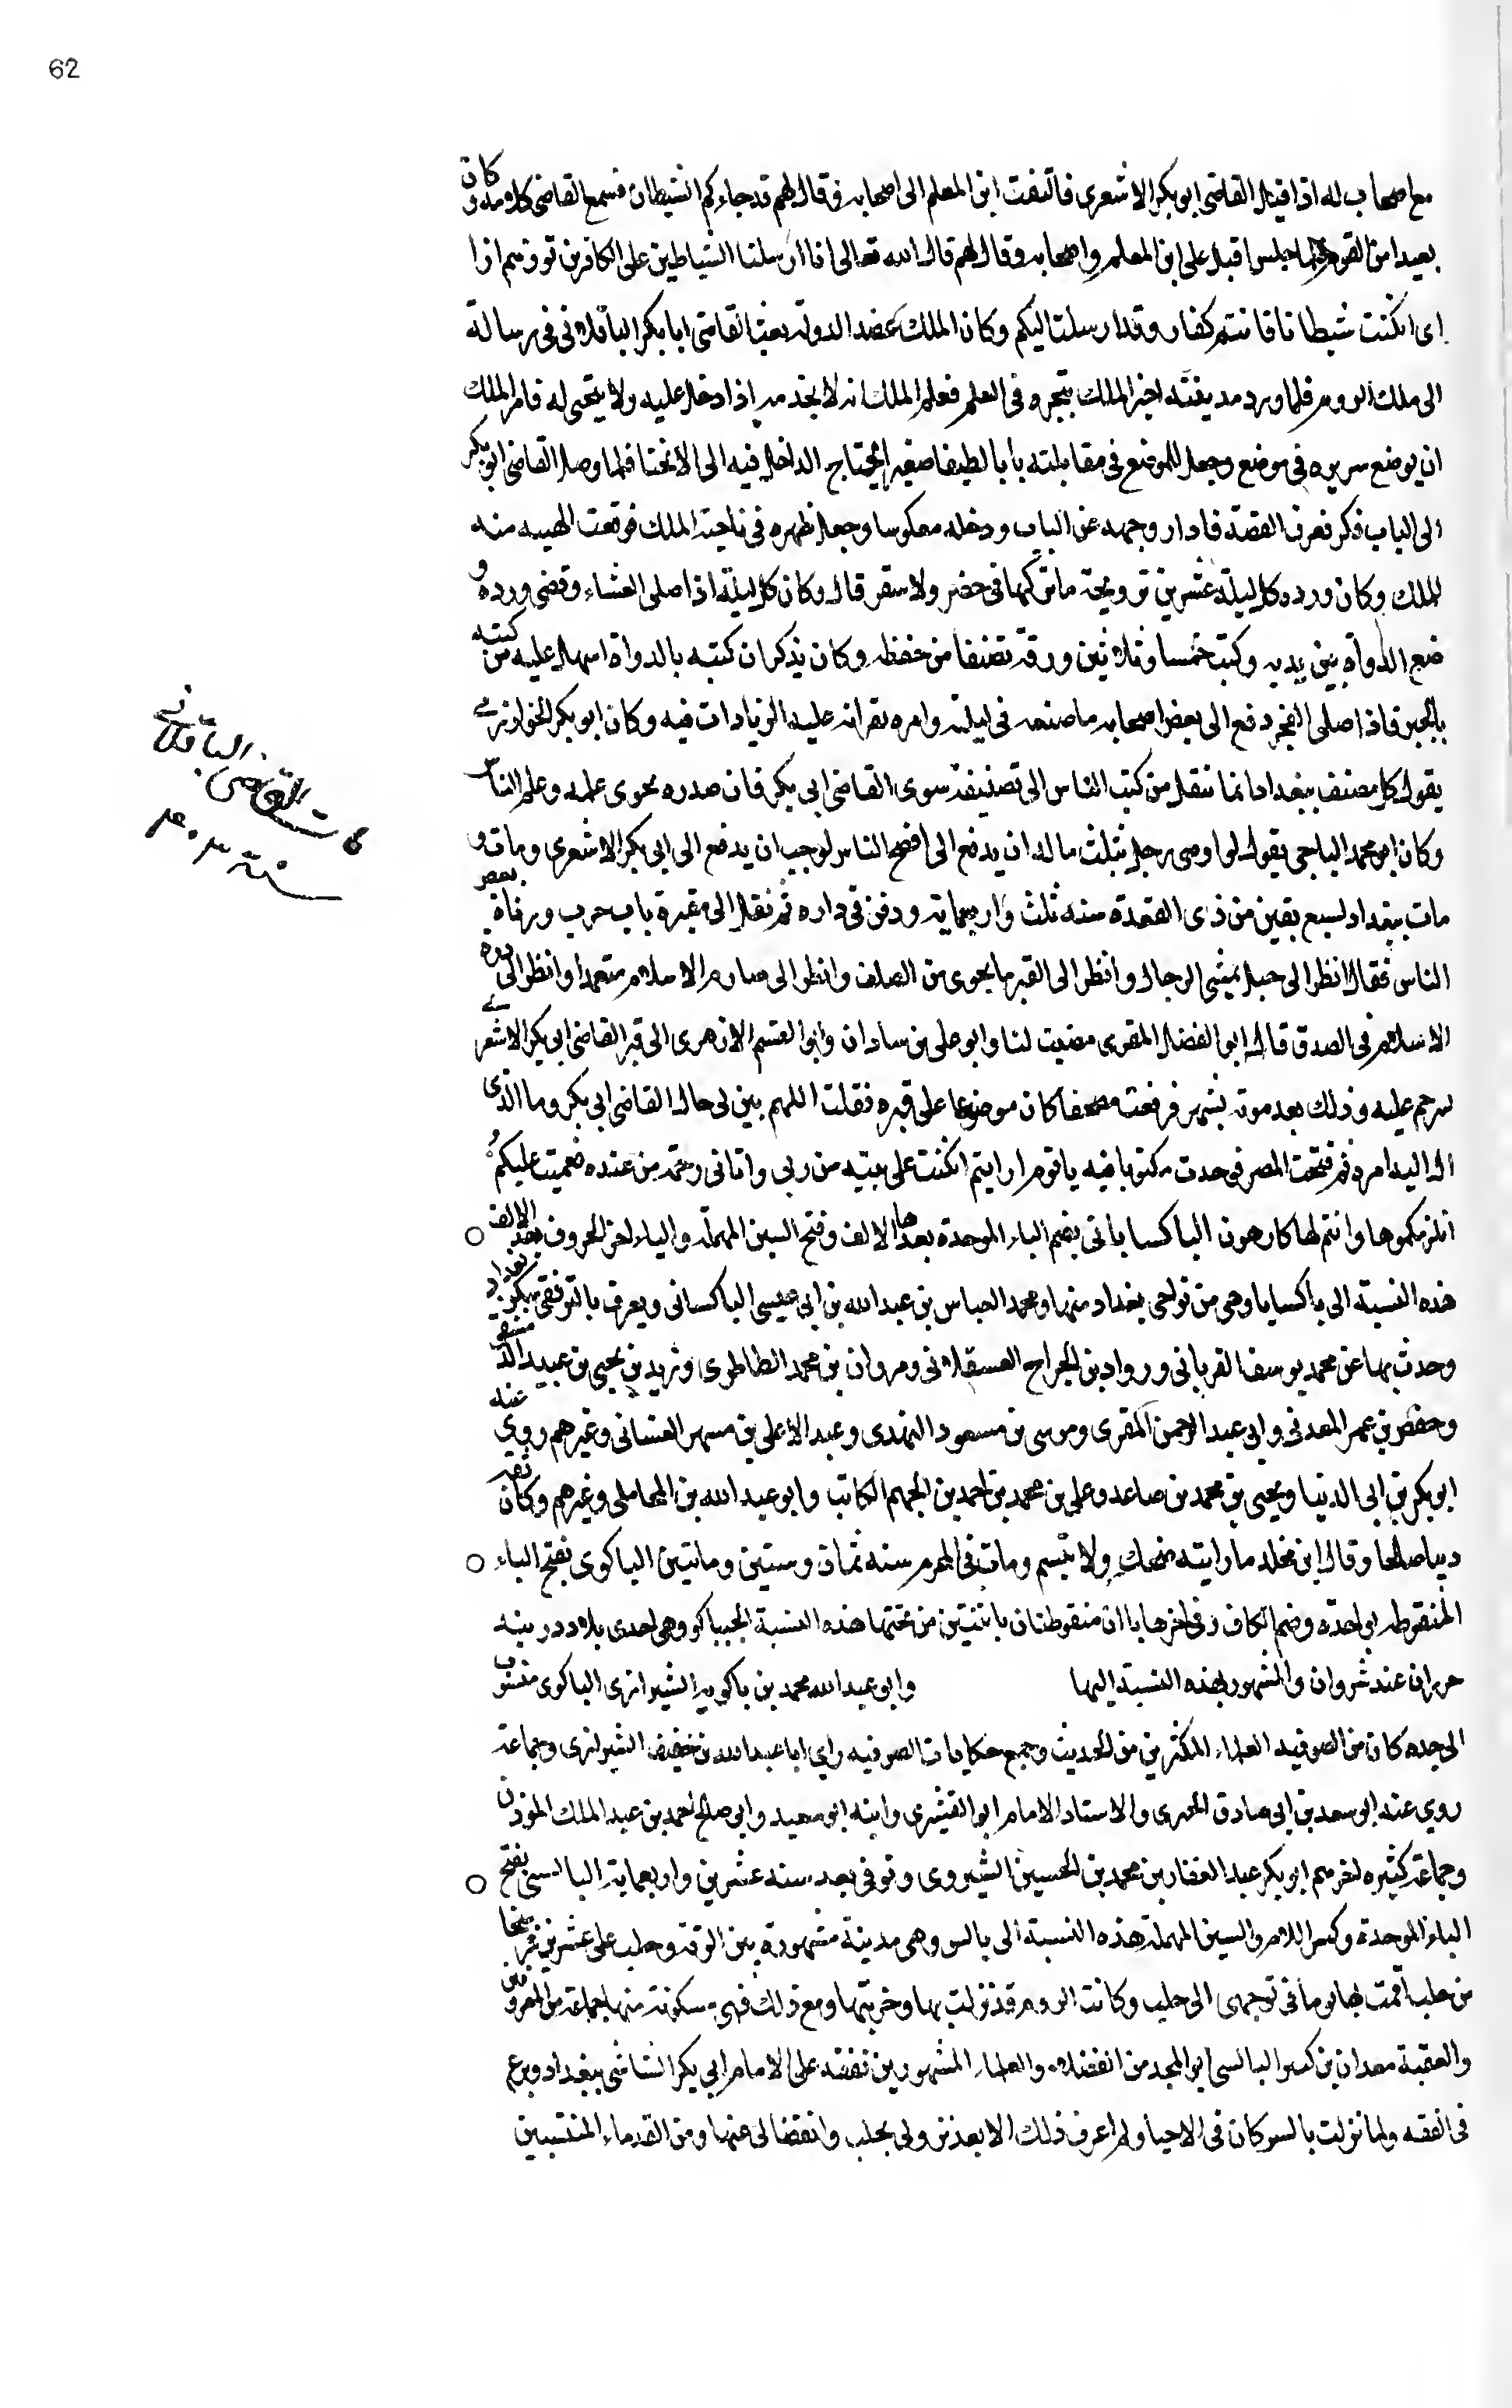 62
مع اصحاب له اذا قبل القاضى ابو بكر الاشعرى فالتفت ابن المعلم الى اصحابه وقال لهم قد جاءكم الشيطان فسمع القاضى كلامه وكان
بعيدا من القوم فلما جلس اقبل على ابن المعلم واصحابه وقال لهم قال الله تعالى انا ارسلنا الشياطين على الكافرين توزهم ازا
اى ان كنت شيطانا فانتم كفار وقد ارسلت اليكم وكان الملك عضد الدولة بعث القاضى ابا بكر الباقلانى فى رسالة
الى ملك الروم فلما ورد مدينته اخبر الملك بتبحره فى العلم فعلم الملك انه لا يخدمه اذا دخل عليه ولا ينحنى له فامر الملك
ان يوضع سريره فى موضع وجعل للموضع فى مقابلته بابا لطيفا صغيرا يحتاج الداخل فيه الى الانحنا فلما وصل القاضى ابو بكر
الى الباب فكر فعرف القصة فادار وجهه عن الباب ودخله معكوسا وجعل ظهره فى ناحية الملك فوقعت الهيبه منه
للملك وكان ورده كل ليلة عشرين ترويحة ما تركها فى حضر ولا سفر قال وكان كل ليلة اذا صلى العشاء وقضى ورده و
ضع الدواة بين يديه وكتب خمسا وثلاثين ورقة تصنفا من حفظه وكان يذكر ان كتبه بالدواة اسهل عليه من كتبه
بالحبر فاذا صلى الفجر دفع الى بعض اصحابه ما صنفه فى ليلته وامره بقرانه عليه الزيادات فيه وكان ابو بكر الخوارزمى
يقول كل مصنف ببغداد انما ينقل من كتب الناس الى تصنيفه سوى القاضى ابى بكر فان صدره يحوى علمه وعلم الناس
وكان ابو محمد الباجى يقول لو اوصى رجل بثلث ماله ان يدفع الى افصح الناس لوجب ان يدفع الى ابى بكر الاشعرى ومات و
مات ببغداد لسبع بقين من ذى القعدة سنه ثلث واربعماية ودفن فى داره ثم نقل الى مقبرة باب حرب ورثاه بعض
الناس فقال انظر الى جبل يمشى الرجال وانظر الى القبر ما يحوى من الصلف وانظر الى صارم الاسلام متغمدا وانظر الى درة
الاسلام فى الصدق قال ابو الفضل المقرى مضيت لنا وابو على بن سادان وابو القسم الازهرى الى قبر القاضى ابى بكر الاشعرى
لنرحم عليه وذلك بعد موته بشهر فرفعت مصحفا كان موضوعا على قبره فقلت اللهم بين لى حال القاضى ابى بكر وما الذى
ال اليه امره ثم فتحت المصحف فوجدت مكتوبا فيه يا قوم ارايتم ان كنت على بينه من ربى واتانى رحمة من عنده فعميت عليكم
انلزمكموها وانتم لها كارهون الباكسايانى بضم الباء الموحدة بعدها الالف وفتح السين المهملة والياء اخر الحروف بعد الالف
هذه النسبة الى باكسايا وهى من نواحى بغداد منها ومحمد العباس بن عبد الله بن ابى عيسى الباكسانى ويعرف بالترقفى سكن بغداد
وحدث بها عن محمد يوسف الفريانى ورواد بن الجراح العسقلانى ومروان بن محمد الطاطرى وزيد بن يحيى بن عبيد الدمشقى
وحفص بن عمر العدنى وابى عبد الرحمن المقرى وموسى بن مسعود النهدى وعبد الاعلى بن مسهر الغسانى وغيرهم روى عنه
ابو بكر بن ابى الدنيا ويحيى بن محمد بن صاعد وعلى بن محمد بن احمد بن الجهم الكاتب وابو عبد الله بن المحاملى وغيرهم وكان ثقه
دينا صالحا وقال ابن مخلد ما رايته ضحك ولا تبسم ومات فى المحرم سنه ثمان وستين ومايتين الباكوى بفتح الباء
المنقوطه بواحدة وضم الكاف وفى اخرها يا ان منقوطتان باثنتين من تحتها هذه النسبة الى باكو وهى احدى بلاد دربند
خزران عند شروان والمشهور بهذه النسبة اليها وابو عبد الله محمد بن باكويه الشيرازى الباكوى منسوب
الى جده كان من الصوفيه العلماء المكثرين من الحديث وجمع حكايات الصوفيه راى ابا عبد الله بن خفيف الشيرازى وجماعة
روى عنه ابو سعد بن ابى صادق الحيرى والاستاد الامام ابو القشيرى وابنه ابو سعيد وابو صالح احمد بن عبد الملك الموذن
وجماعة كثيره اخرهم ابو بكر عبد الغفار بن محمد بن الحسين الشيروى وتوفى بعد سنه عشرين واربعماية البالسى بفتح
الباء الموحدة وكسر اللام والسين المهملة هذه النسبة الى بالس وهى مدينة مشهورة بين الرقة وحلب على عشرين فرسخا
من حلب اقمت بها يوما فى توجهى الى حلب وكانت الروم قد نزلت بها وخربتها ومع ذلك فهى مسكونة منها جماعة من المعروفين
والعقبة معدان بن كسر البالسى ابو المجد من الفضلاء والعلماء المشهورين تفقه على الامام ابى بكر الشاشى ببغداد وبرع
فى الفقه ولما نزلت بالس وكان فى الاحيا ولم اعرف ذلك الا بعد نزولى بحلب وانفصالى عنها ومن القدماء المنتسبين
مات القاضى الباقلانى
سنة ٤٠٣